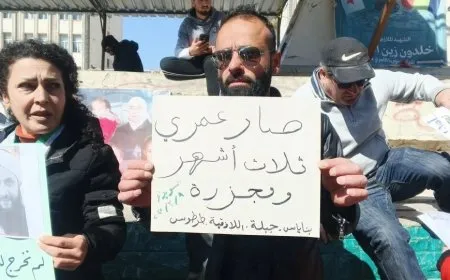 الشهيد اللازم
خلدون زين ا
صار عمري
ثلاث أشهر
ومجزرة
بانياس.. جبلة.. اللاذقية طرطوس
لم تخرج